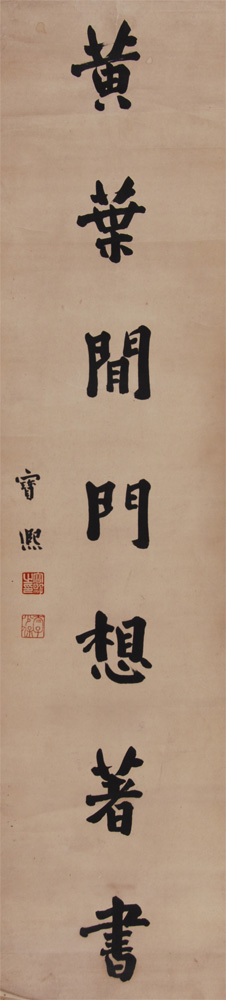 黃葉閒門想著書
寶熙